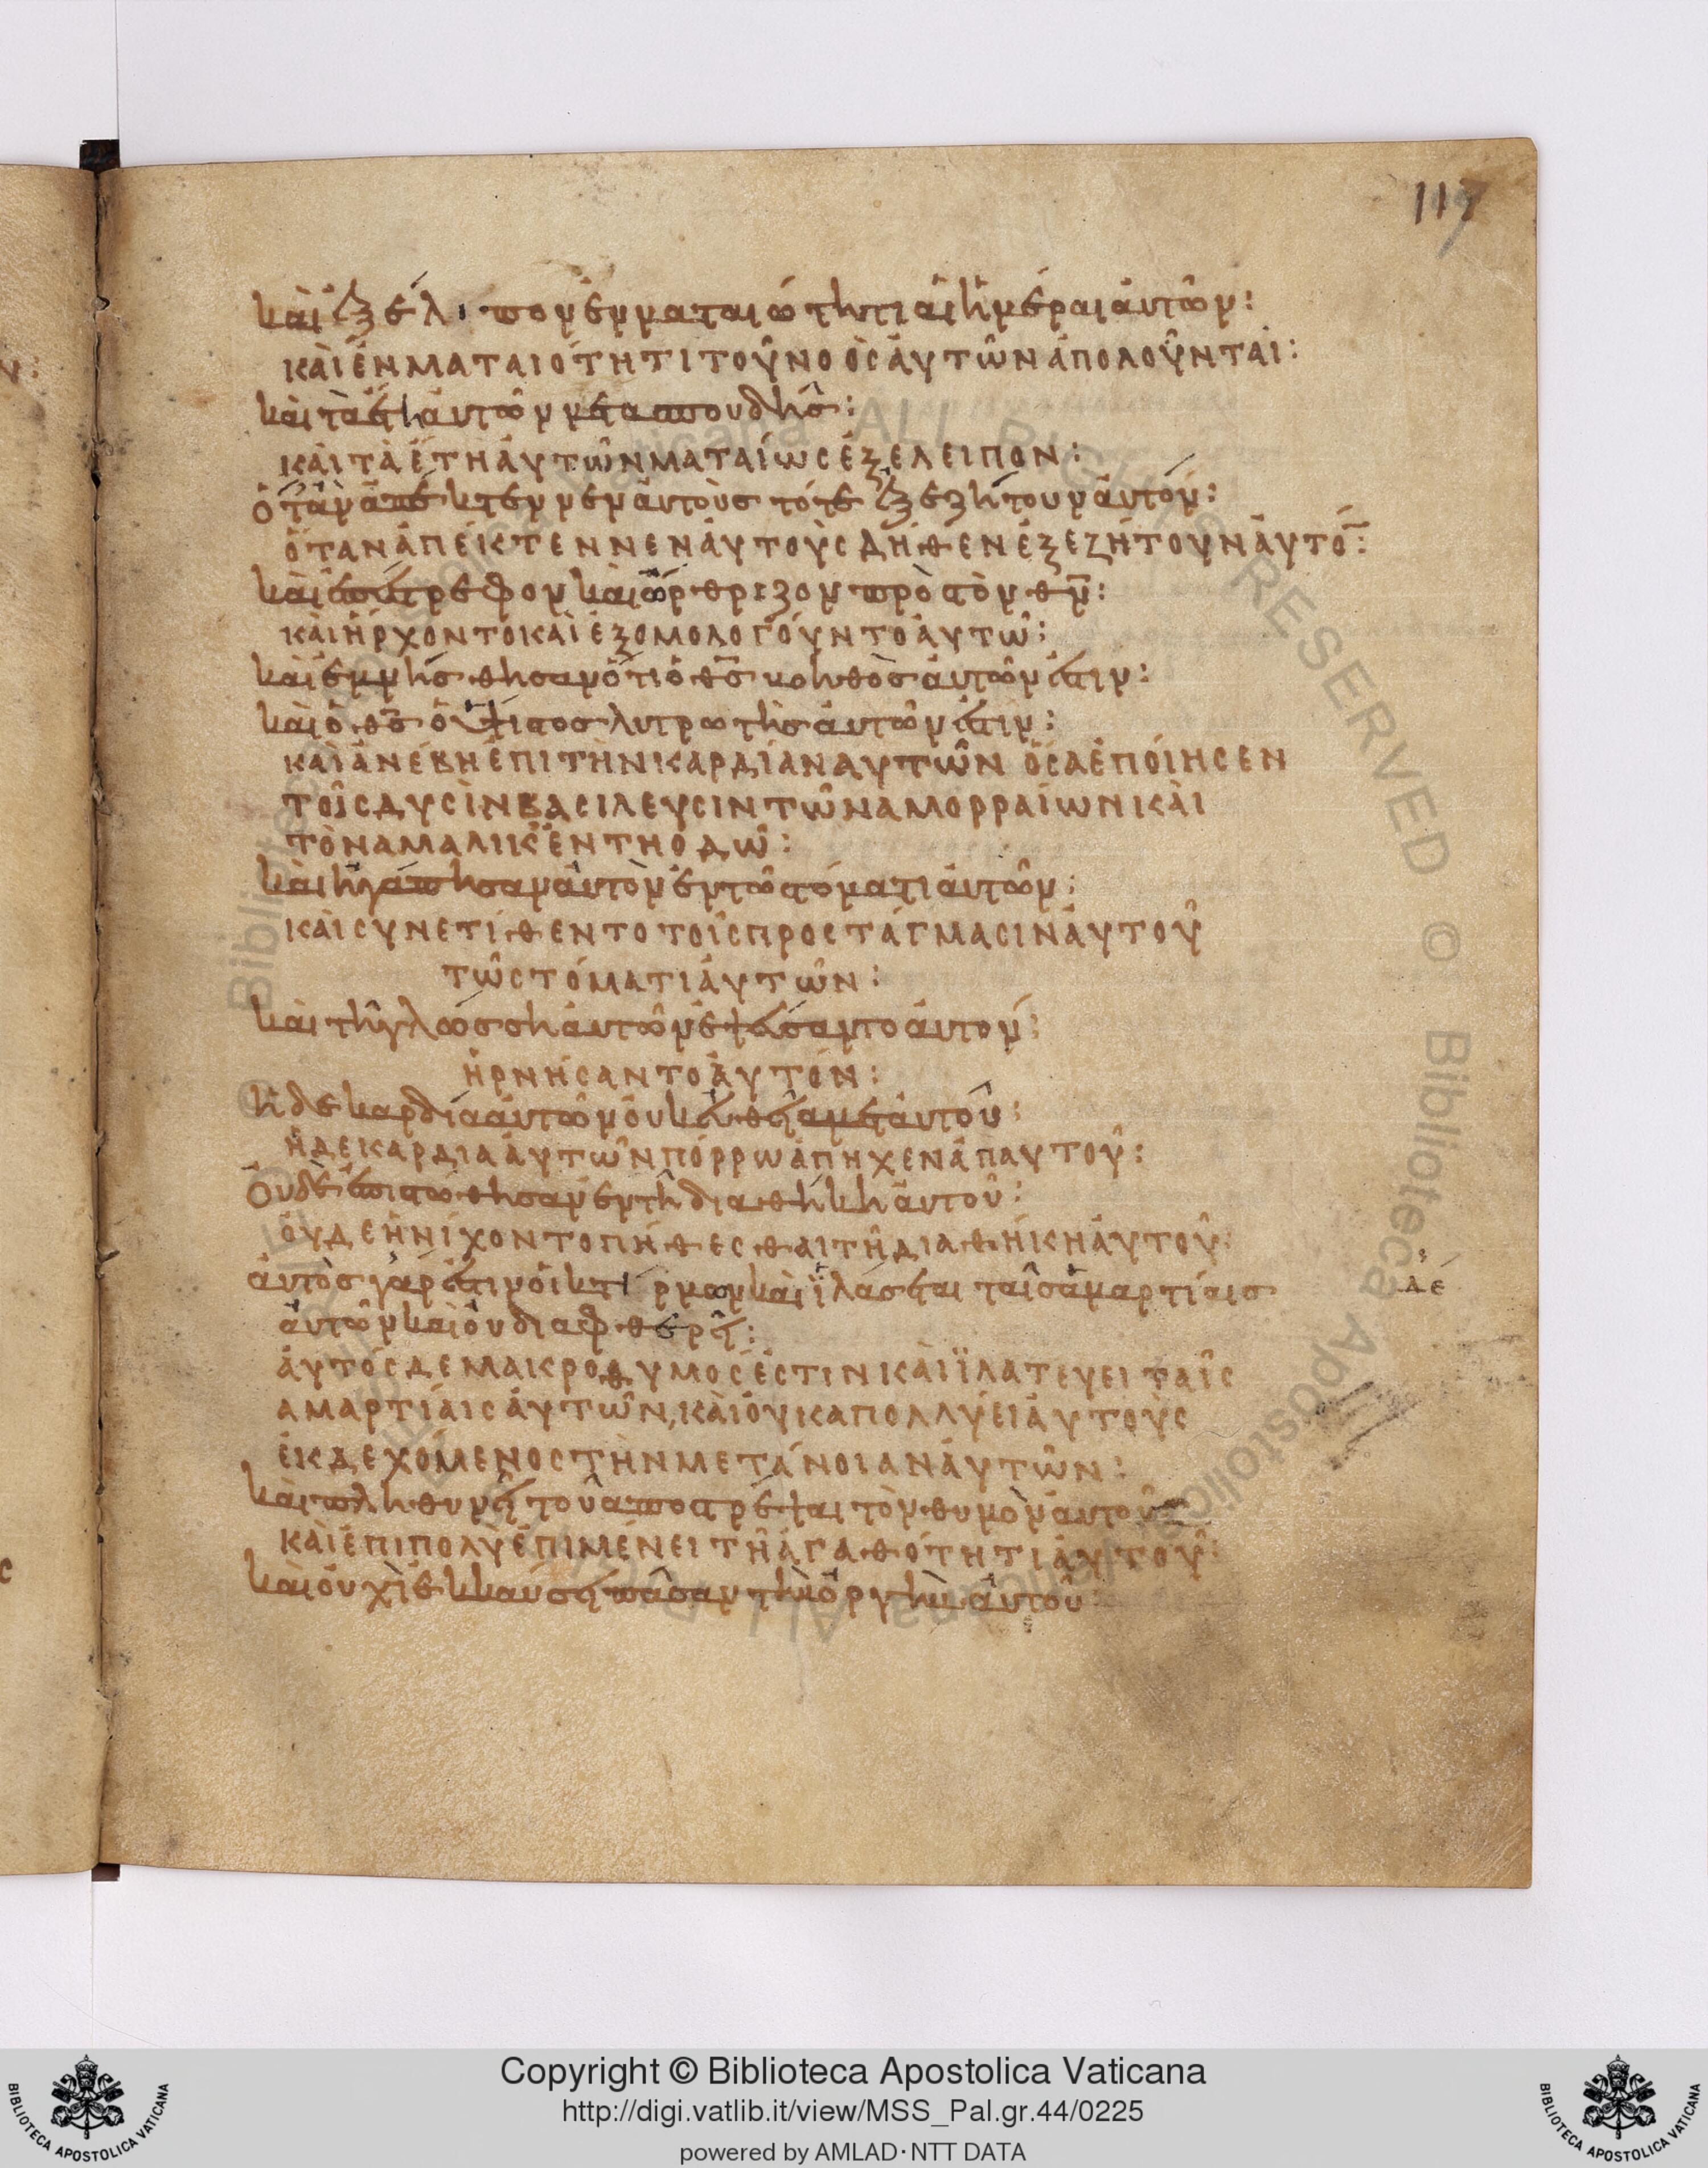 117
καὶ ἐξέλιπον ἐν ματαιότητι αἱ ἡμέραι ἀυτῶν:
ΚΑῚ ἘΝ ΜΑΤΑΙΌΤΗΤΙ ΤΟΥ͂ ΝΟῸC ἈΥΤῶΝ ἈΠΟΛΟΥ͂ΝΤΑΙ:
καὶ τὰ ἔτη ἀυτῶν μετὰ σπουδῆσ:
ΚΑῚ ΤᾺ ἜΤΗ ἈΥΤῶΝ ΜΑΤΑΊωC ἘΞΕΛΕΙΠΟΝ:
ὅταν ἀπέκτεννεν ἀυτοὺσ τότε ἐξεζήτουν ἀυτόν:
ὍΤΑΝ ἈΠΕΚΤΕΝΝΕΝ ἈΥΤΟῪC ΔΉΘΕΝ ἘΞΕΖΉΤΟΥΝ ἈΥΤΌ̅:
καὶ ἐπέστρεφον καὶ ὤρθριζον πρὸσ τὸν θν̅:
ΚΑῚ ἬΡΧΟΝΤΟ ΚΑῚ ἘΞΟΜΟΛΟΓΌΥΝΤΟ ἈΥΤῶ:
καὶ ἐμνήσθησαν ὅτι ὁ θσ̅ βοηθὸσ ἀυτῶν ἐστιν:
καὶ ὁ θσ̅ ὁ ὕψιστοσ λυτρωτὴσ ἀυτῶν ἐστιν:
ΚΑῚ ἈΝΈΒΗ ἘΠΙ ΤῊΝ ΚΑΡΔΊΑΝ ΑΥΤῶΝ ὍCΑ ἘΠΟΊΗCΕΝ
ΤΟΙ͂C ΔΥCῚΝ ΒΑCΙΛΕΥCΙΝ ΤῶΝ ΑΜΟΡΡΑΊωΝ ΚΑῚ
ΤῸΝ ΑΜΑΛΗΚ ἘΝ ΤΗ ὉΔῶ:
καὶ ἠγάπησαν ἀυτὸν ἐν τῶ στόματι ἀυτῶν:
ΚΑῚ CΥΝΕΤΊΘΕΝΤΟ ΤΟΙ͂C ΠΡΟCΤΆΓΜΑCΙΝ ἈΥΤΟΥ͂
ΤῶCΤΌΜΑΤΙ ἈΥΤῶΝ:
καὶ τῆ γλώσση ἀυτῶν ἐψεύσαντο ἀυτόν:
ἨΡΝΉCΑΝΤΟ ἈΥΤΌΝ:
ἡ δε καρδία ἀυτῶν ὀυκ ἐυθεῖα μετ ἀυτοῦ:
Ἡ ΔΕ ΚΑΡΔΙΑ ἈΥΤῶΝ ΠΌΡΡω ἈΠΗΧΕΝ ἈΠ ΑΥΤΟΥ͂:
Ὀυδὲ ἐπιστώθησαν ἐν τῆ διαθήκη ἀυτοῦ:
ὈΥΔΕ ἨΝΊΧΟΝΤΟ ΠΉΘΕCΘΑΙ ΤΗ͂ ΔΙΑΘΉΚΗ ἈΥΤΟΥ͂:
ἀυτὸσ γάρ ἐστιν οἰκτίρμων καὶ ἱλάσεται ταῖσ ἁμαρτίαισ
ἀυτῶν καὶ ὀυ διαφθερεῖ:
ἈΥΤΌC ΔΕ ΜΑΚΡΟΘΥΜΟC ἘCΤΙΝ ΚΑῚ ΪΛΑΤΕΥΕΙ ΤΑΙ͂C
ΑΜΑΡΤΊΑΙC ἈΥΤῶΝ, ΚΑῚ ὈΥΚ ΑΠΟΛΛΎΕΙ ἈΥΤΟῪC
ἘΚΔΕΧΌΜΕΝΟC ΤῊΝ ΜΕΤΆΝΟΙΑΝ ἈΥΤῶΝ:
καὶ πληθυνεῖ τοῦ αποστρέψαι τὸν θυμὸν ἀυτοῦ
ΚΑῚ ἘΠΙΠΟΛῪ ἘΠΙΜΈΝΕΙ ΤΗ͂ ἈΓΑΘΌΤΗΤΙ ἈΥΤΟΥ͂:
καὶ ὀυχὶ ἐκκαύσει πᾶσαν τὴν ὀργὴν ἀυτοῦ
Copyright © Biblioteca Apostolica Vaticana
http://digi.vatlib.it/view/MSS_Pal.gr.44/0225
powered by AMLAD·NTT DATA